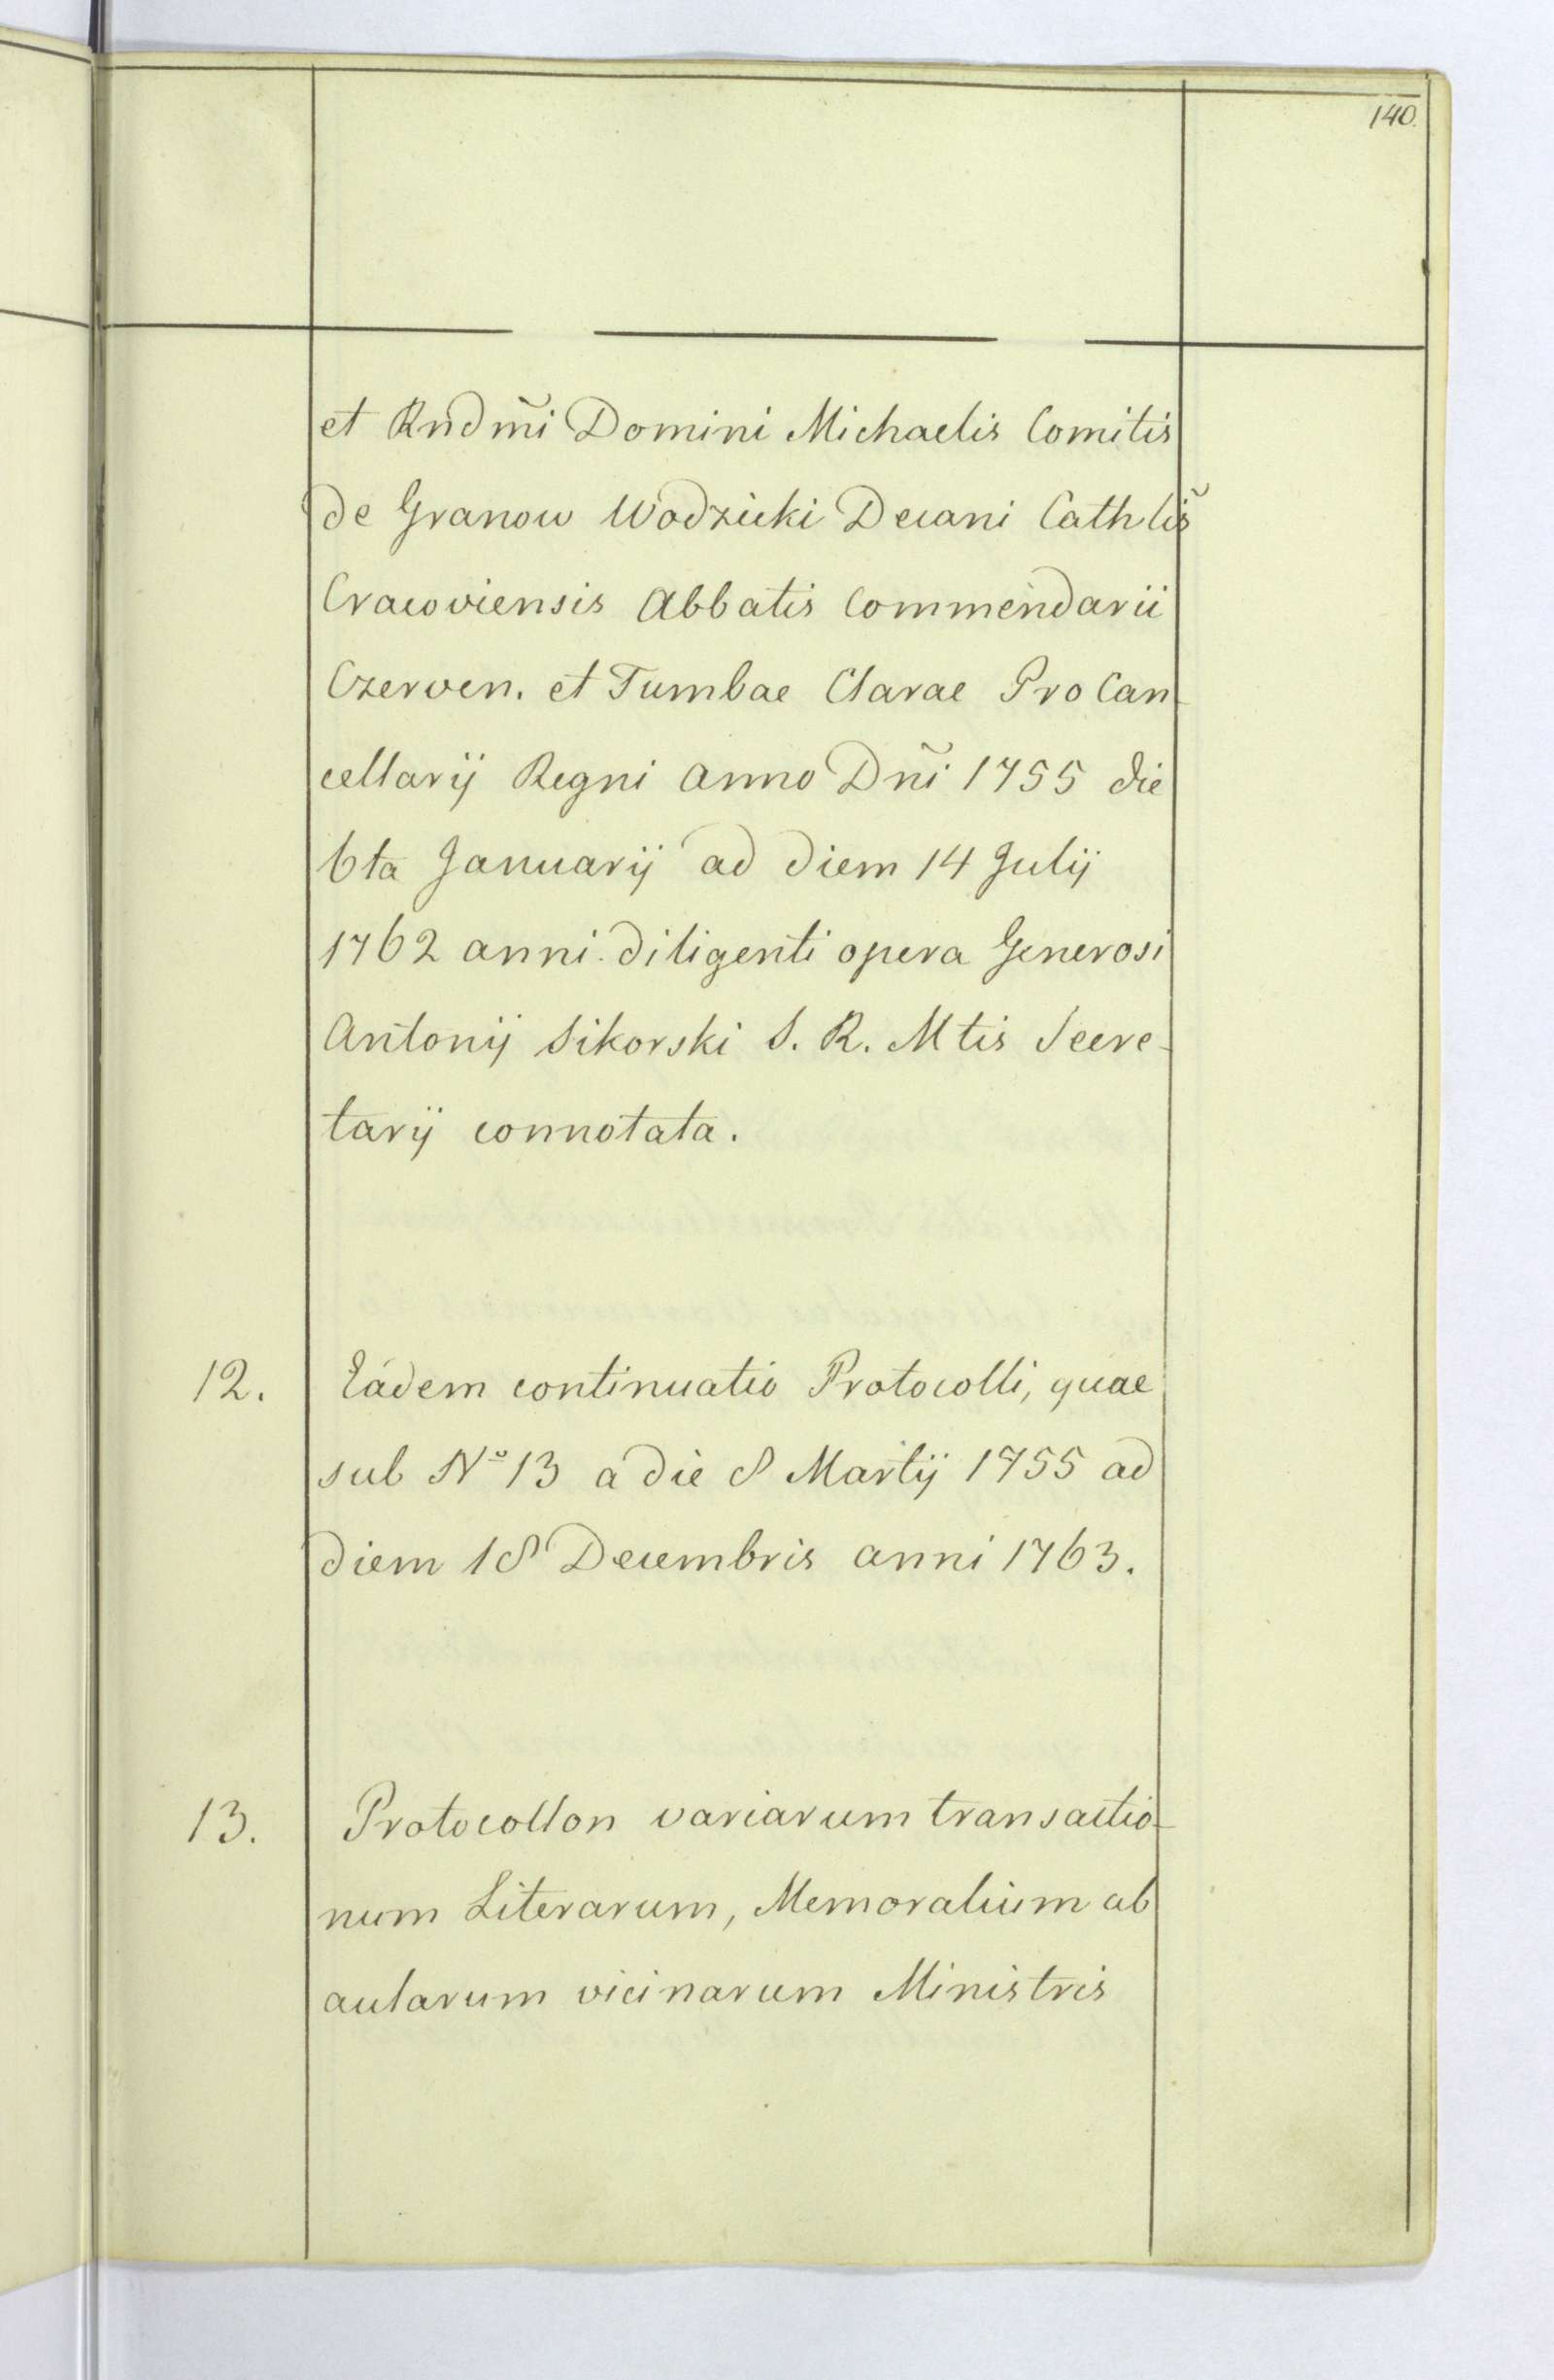 140.
et Rndm̃i Domini Michaelis Comitis
de Granow Wodzicki Decani Cathlis̃
Cracoviensis Abbatis Commendarii
Czerven. et Tumbae Clarae Pro Can-
cellarij Regni anno Dñi 1755 die
6ta Januarij ad diem 14 Julij
1762 anni diligenti opera Generosi
Antonij Sikorski S. R. Mtis Secre-
tarij connotata.
12. Eádem continuatio Protocolli, quae
sub Nº 13 a die 8 Martij 1755 ad
diem 18 Decembris anni 1763.
13. Protocollon variarum transactio-
num Literarum, Memoralium ab
aularum vicinarum Ministris